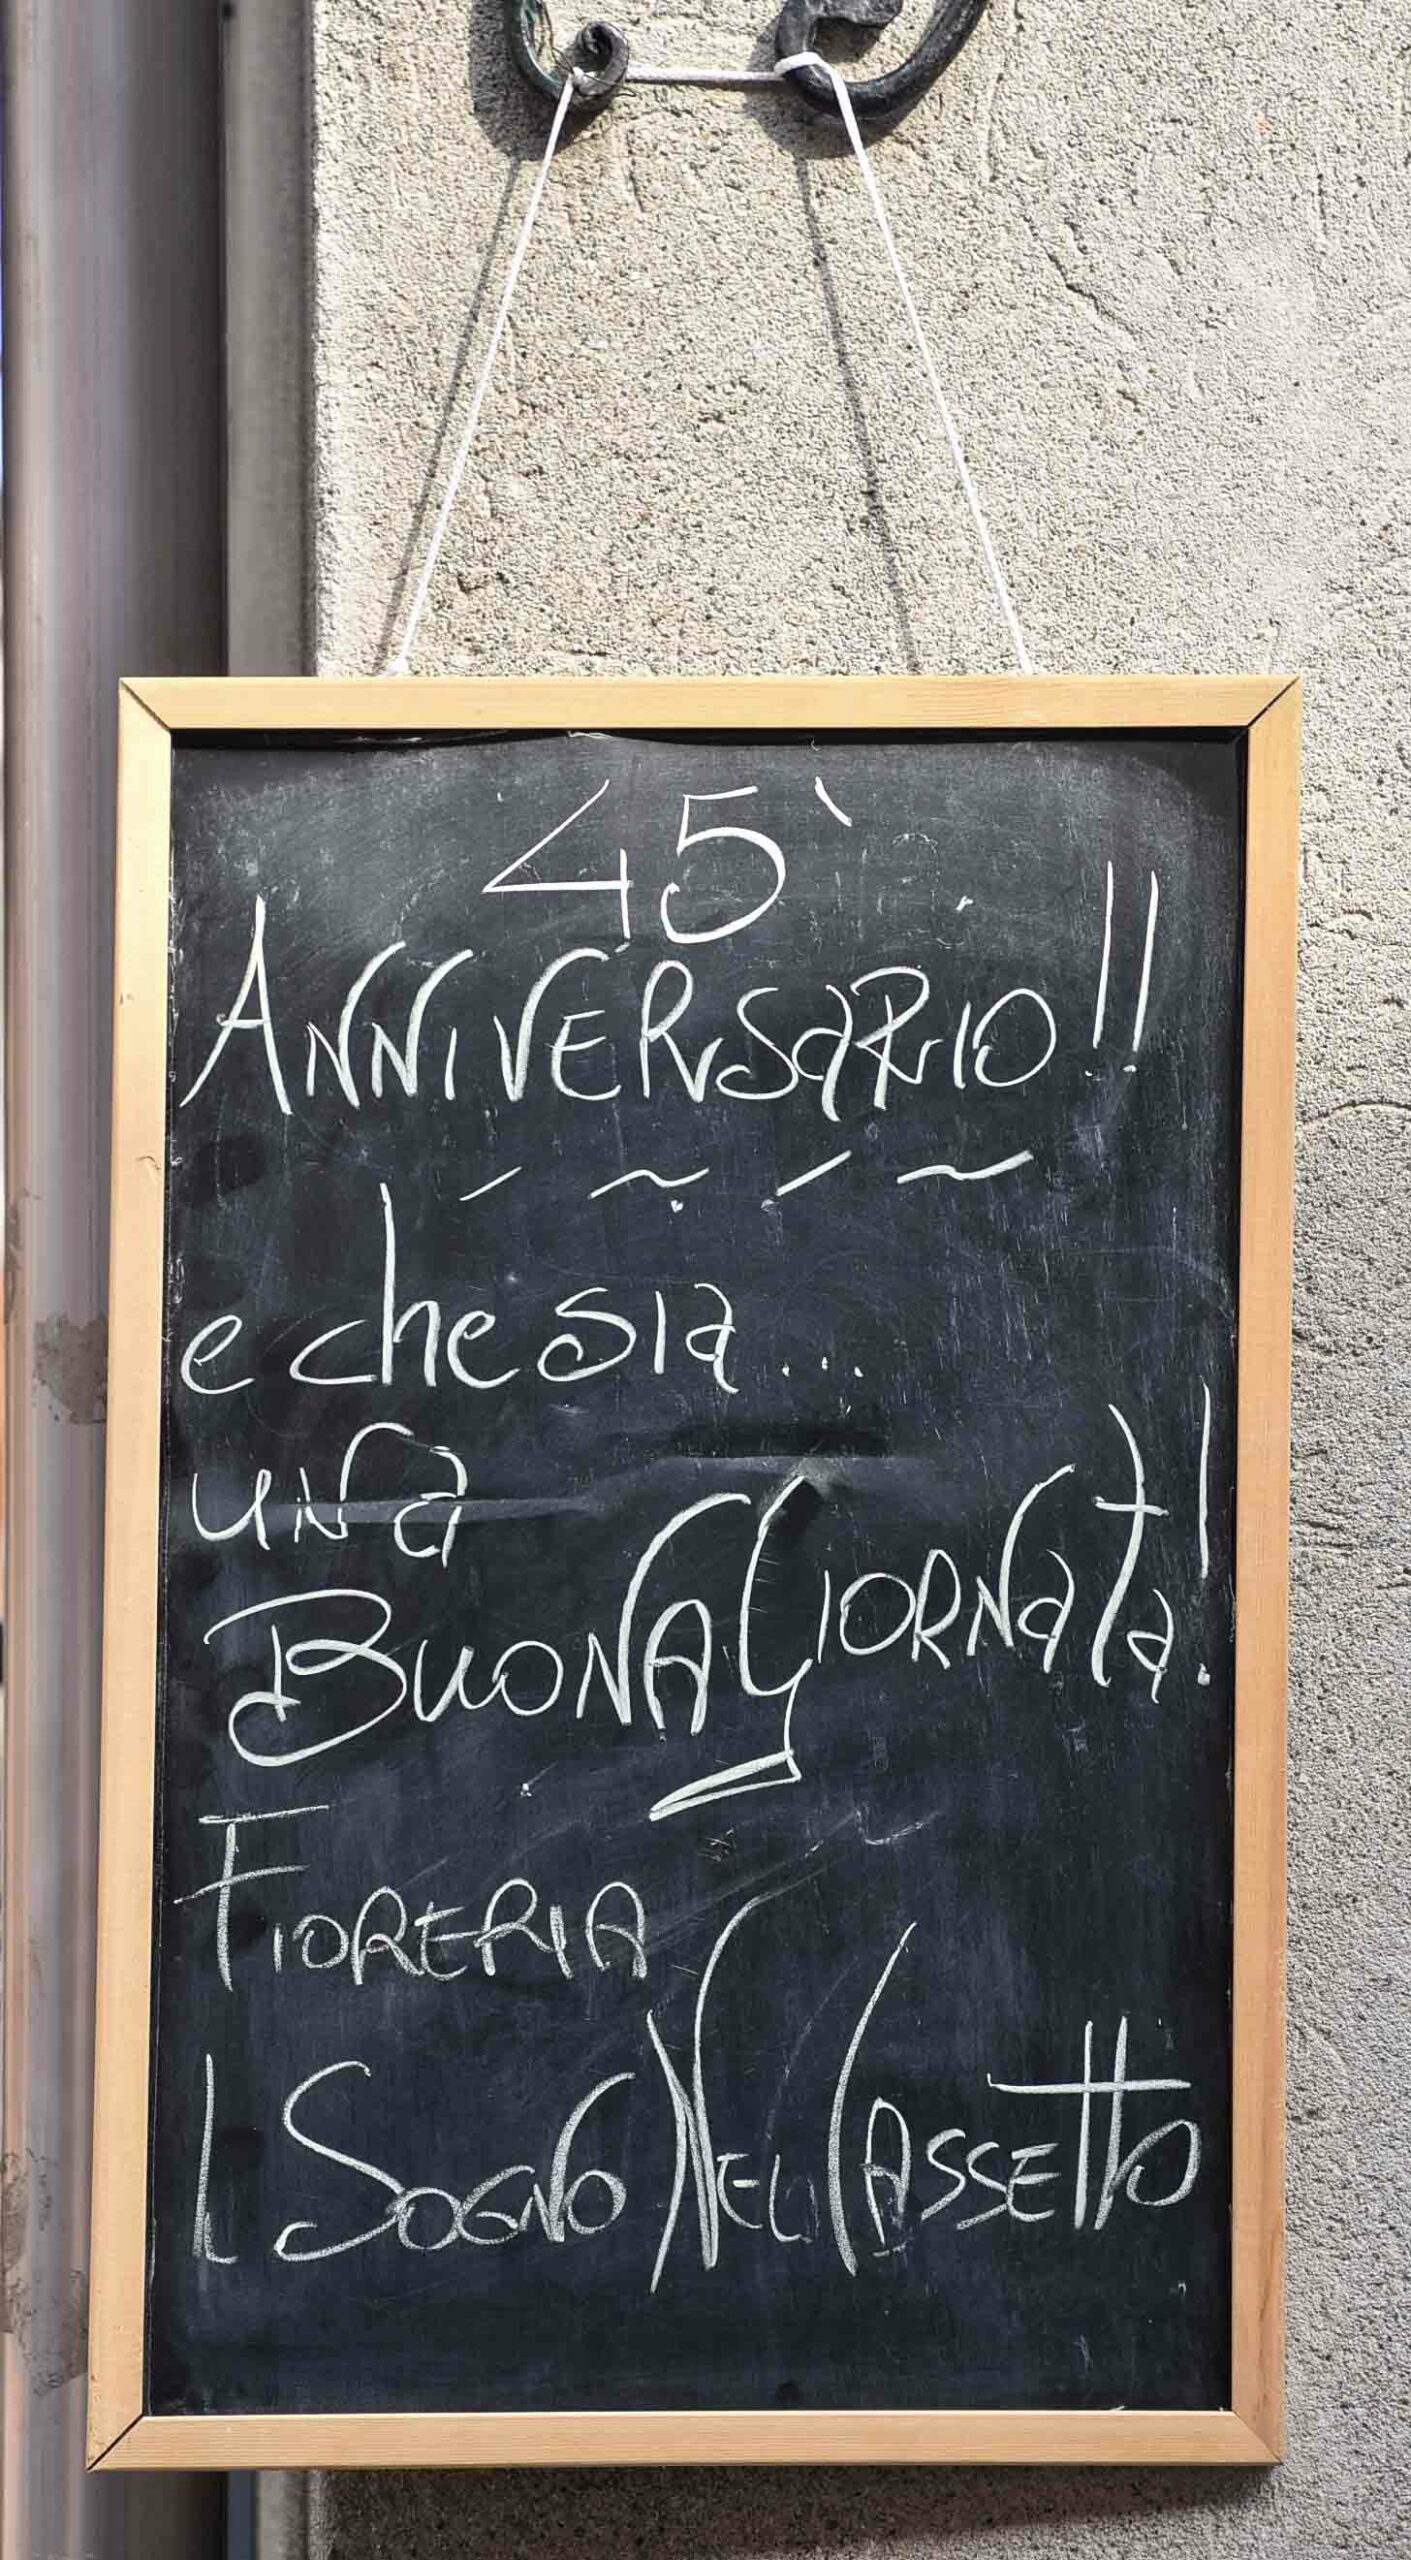 45`
ANNIVERSARIO!!
e che sia...
una
BUONA GIORNATA!
FIORERIA
IL SOGNO NEL CASSETTO